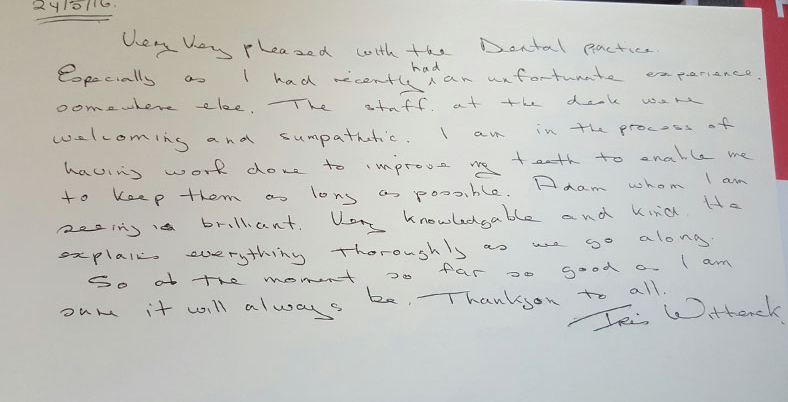 24/5/16.
Very Very pleased with the Dental Practice.
had
Especially as I had recently an unfortunate experience.
somewhere else. The staff. at the desk were
welcoming and sumpathetic. I am in the process of
having work done to improve my teeth to enable me
to keep them as long as possible. Adam whom I am
seeing is brilliant. Very knowledgable and kind. He
explains everything thoroughly as we go along.
So at the moment so far so good as I am
sure it will always be. Thankyou to all.
Iris